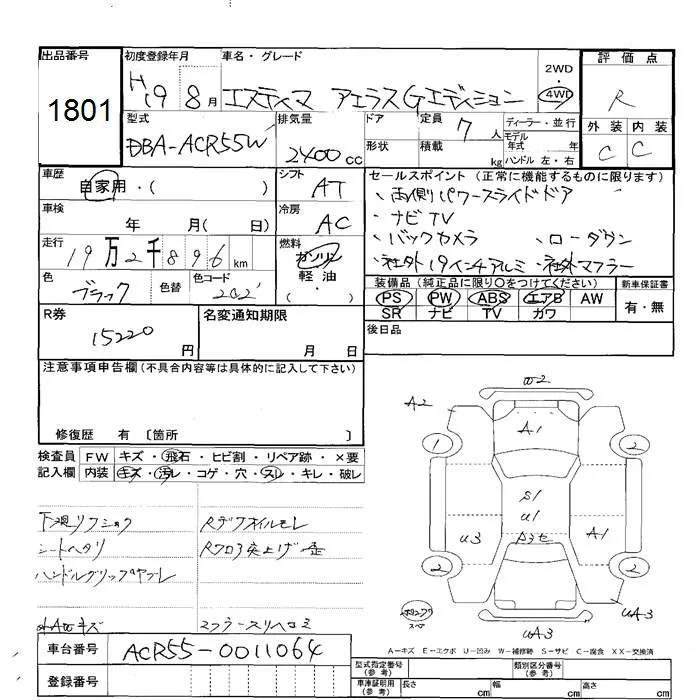 出品番号
1801
初度登録年月
H19 8月
車名・グレード
エスティマ アエラスGエディション
2WD
・
4WD
評価点
R
外装 内装
C C
型式
DBA-ACR55W
排気量
2400cc
ドア
形状
定員 7人
積載 kg
ディーラー・並行
モデル
年式 年
ハンドル 左・右
車歴
自家用・( )
シフト
AT
車検
年 月( 日)
冷房
AC
走行
19万2千896km
燃料
ガソリン
軽・油
( ・ )
色
ブラック
色替
色コード
202
セールスポイント(正常に機能するものに限ります)
・両側パワースライドドア
・ナビTV
・バックカメラ ・ローダウン
・社外19インチアルミ・社外マフラー
装備品(純正品に限り○をつけてください)
PS PW ABS エアB AW
SR ナビ TV カワ
新車保証書
有・無
後日品
R券
15220円
名変通知期限
月 日
注意事項申告欄(不具合内容等は具体的に記入して下さい)
修復歴 有 〔箇所 〕
検査員
記入欄
FW キズ・飛石・ヒビ割・リペア跡・×要
内装 キズ・汚レ・コゲ・穴・スレ・キレ・破レ
下廻りフショク
シートヘタリ
ハンドルグリップヤブレ
Rデフオイルモレ
Rクロス突上げ歪
マフラースリヘコミ
W2
A2
A1
1
2
S1
U1
A3
U3
A1
2
2
スペア
UA3
UA3
A-キズ E-エクボ U-凹み W-補修跡 S-サビ C-腐食 XX-交換済
車台番号
ACR55-0011064
登録番号
型式指定番号
(参考)
類別区分番号
(参考)
車庫証明用
(参考)
長さ cm 幅 cm 高さ cm